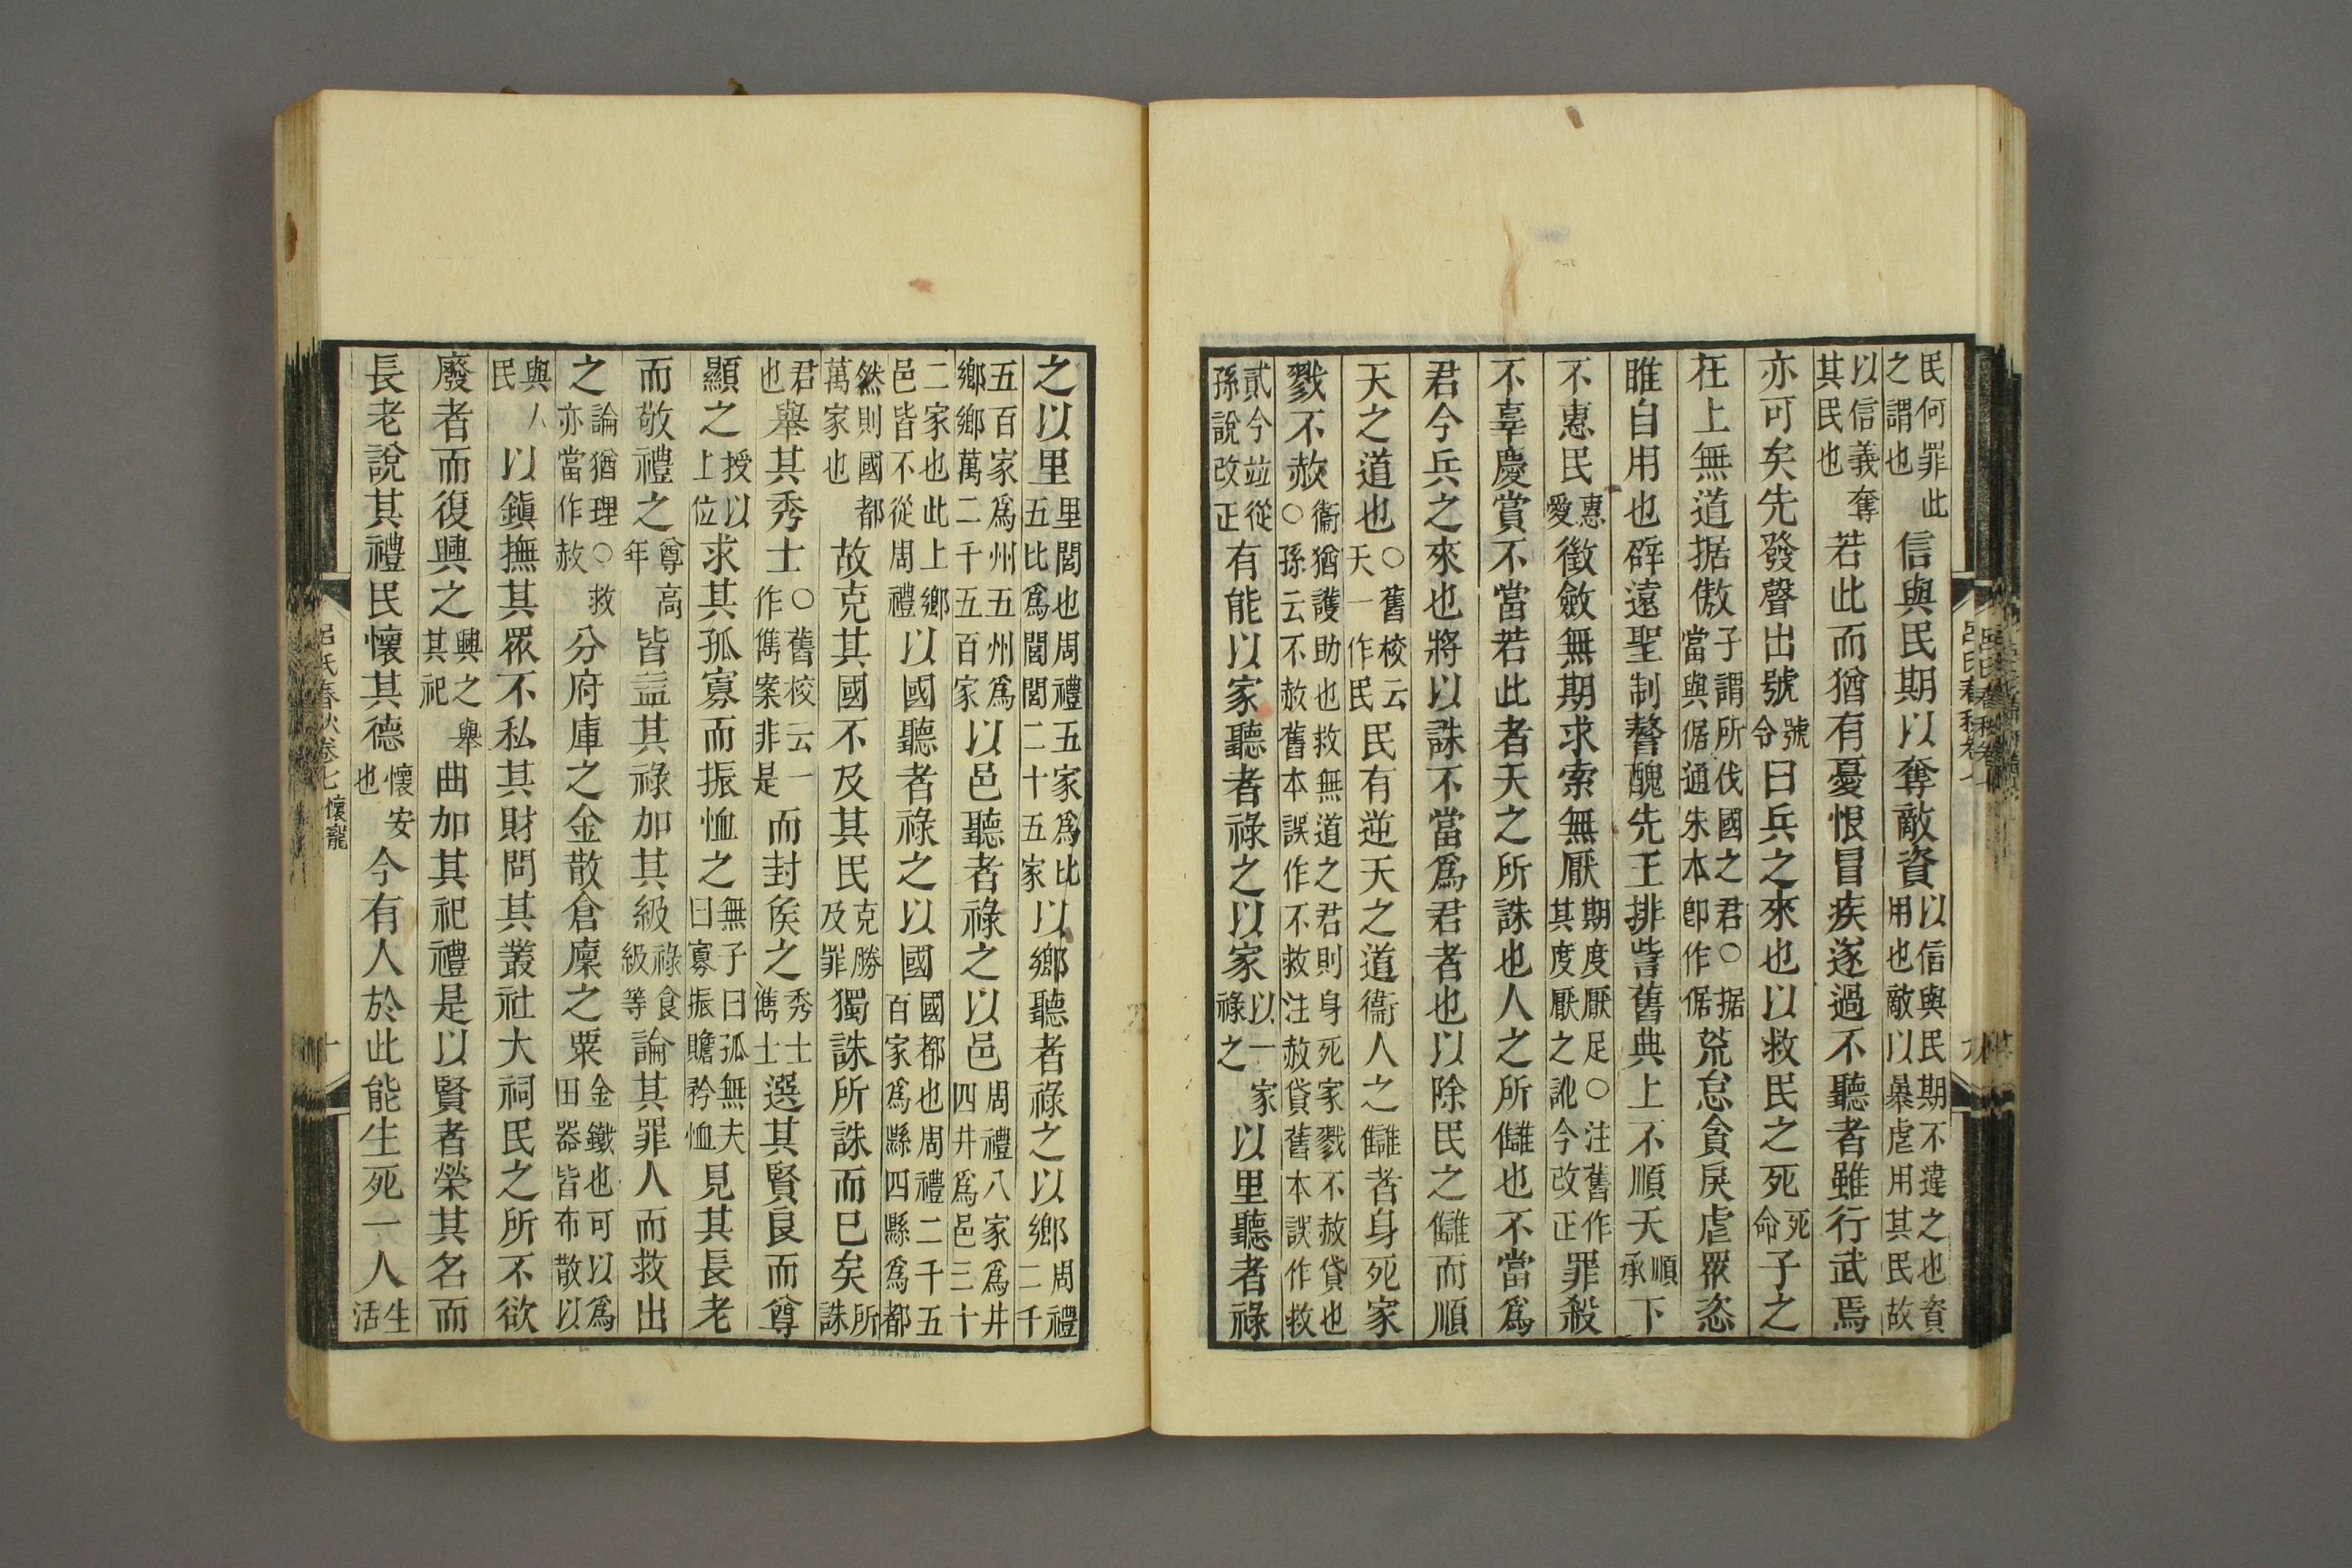 民何罪此之謂也信與民期以奪敵資以信與民期不違之也資用也敵以暴虐用其民故
以信義奪其民也若此而猶有憂恨冒疾遂過不聽者雖行武焉
亦可矣先發聲出號號令曰兵之來也以救民之死死命子之
在上無道据傲子謂所伐國之君○据當與倨通朱本卽作倨荒怠貪戾虐眾恣
睢自用也辟遠聖制謷醜先王排訾舊典上不順天順承下
不惠民惠愛徵斂無期求索無厭期度厭足○注舊作其度厭之訛今改正罪殺
不辜慶賞不當若此者天之所誅也人之所讎也不當爲
君今兵之來也將以誅不當爲君者也以除民之讎而順
天之道也○舊校云天一作民民有逆天之道衞人之讎者身死家
戮不赦衞猶護助也救無道之君則身死家戮不赦貸也○孫云不赦舊本誤作不救注赦貸舊本誤作救
貳今竝從孫說改正有能以家聽者祿之以家以一家祿之以里聽者祿
之以里里閭也周禮五家爲比五比爲閭閭二十五家以鄉聽者祿之以鄉周禮二千
五百家爲州五州爲鄉鄉萬二千五百家以邑聽者祿之以邑周禮八家爲井四井爲邑三十
二家也此上鄉邑皆不從周禮以國聽者祿之以國國都也周禮二千五百家爲縣四縣爲都
然則國都萬家也故克其國不及其民克勝及罪獨誅所誅而已矣所誅
君也舉其秀士○舊校云一作儁案非是而封侯之秀士儁士選其賢良而尊
顯之授以上位求其孤寡而振恤之無子曰孤無夫曰寡振贍矜恤見其長老
而敬禮之尊高年皆益其祿加其級祿食級等論其罪人而救出
之論猶理○救亦當作赦分府庫之金散倉廩之粟金鐵也可以爲田器皆布散以
與人民以鎭撫其眾不私其財問其叢社大祠民之所不欲
廢者而復興之興之舉其祀曲加其祀禮是以賢者榮其名而
長老說其禮民懷其德懷安也今有人於此能生死一人生活
呂氏春秋卷七 懷寵 十